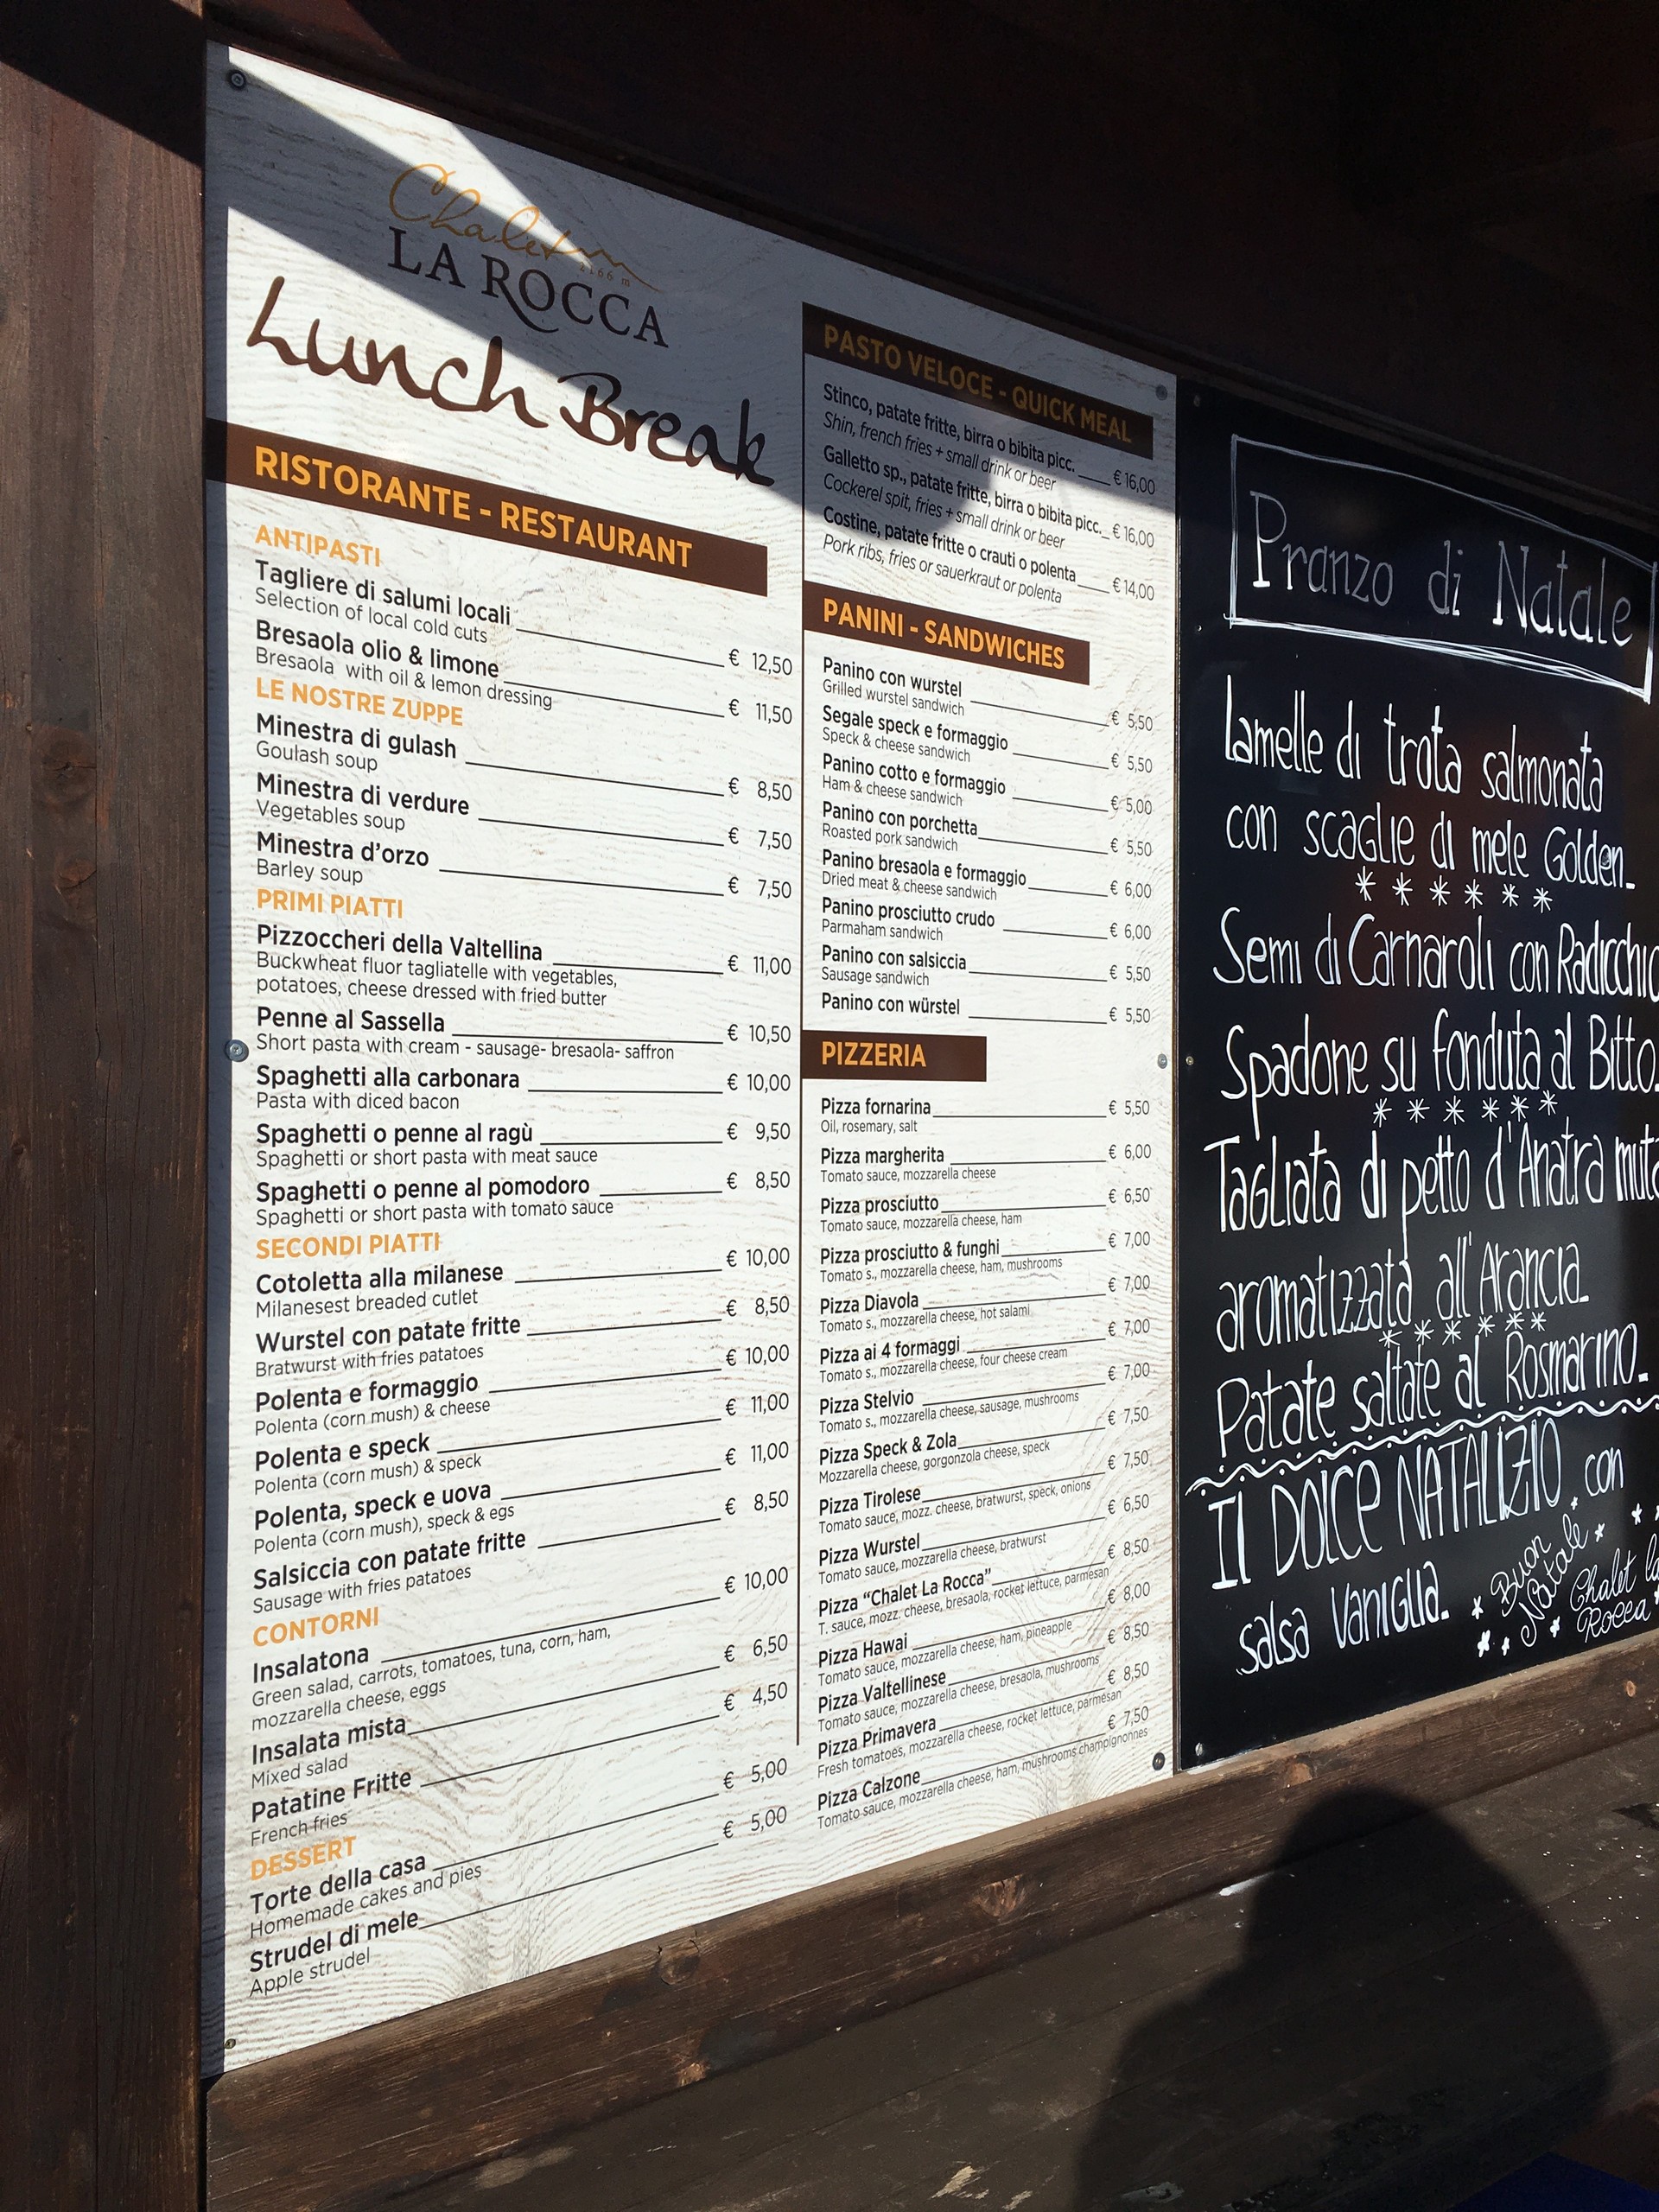 Chalet
2166 m
LA ROCCA
Lunch Break
RISTORANTE - RESTAURANT
ANTIPASTI
Tagliere di salumi locali € 12,50
Selection of local cold cuts
Bresaola olio & limone € 11,50
Bresaola with oil & lemon dressing
LE NOSTRE ZUPPE
Minestra di gulash € 8,50
Goulash soup
Minestra di verdure € 7,50
Vegetables soup
Minestra d'orzo € 7,50
Barley soup
PRIMI PIATTI
Pizzoccheri della Valtellina € 11,00
Buckwheat fluor tagliatelle with vegetables,
potatoes, cheese dressed with fried butter
Penne al Sassella € 10,50
Short pasta with cream - sausage- bresaola- saffron
Spaghetti alla carbonara € 10,00
Pasta with diced bacon
Spaghetti o penne al ragù € 9,50
Spaghetti or short pasta with meat sauce
Spaghetti o penne al pomodoro € 8,50
Spaghetti or short pasta with tomato sauce
SECONDI PIATTI
Cotoletta alla milanese € 10,00
Milanesest breaded cutlet
Wurstel con patate fritte € 8,50
Bratwurst with fries patatoes
Polenta e formaggio € 10,00
Polenta (corn mush) & cheese
Polenta e speck € 11,00
Polenta (corn mush) & speck
Polenta, speck e uova € 11,00
Polenta (corn mush), speck & egs
Salsiccia con patate fritte € 8,50
Sausage with fries patatoes
CONTORNI
Insalatona € 10,00
Green salad, carrots, tomatoes, tuna, corn, ham,
mozzarella cheese, eggs
Insalata mista € 6,50
Mixed salad
Patatine Fritte € 4,50
French fries
DESSERT
Torte della casa € 5,00
Homemade cakes and pies
Strudel di mele € 5,00
Apple strudel
PASTO VELOCE - QUICK MEAL
Stinco, patate fritte, birra o bibita picc. € 16,00
Shin, french fries + small drink or beer
Galletto sp., patate fritte, birra o bibita picc. € 16,00
Cockerel spit, fries + small drink or beer
Costine, patate fritte o crauti o polenta € 14,00
Pork ribs, fries or sauerkraut or polenta
PANINI - SANDWICHES
Panino con wurstel € 5,50
Grilled wurstel sandwich
Segale speck e formaggio € 5,50
Speck & cheese sandwich
Panino cotto e formaggio € 5,00
Ham & cheese sandwich
Panino con porchetta € 5,50
Roasted pork sandwich
Panino bresaola e formaggio € 6,00
Dried meat & cheese sandwich
Panino prosciutto crudo € 6,00
Parmaham sandwich
Panino con salsiccia € 5,50
Sausage sandwich
Panino con würstel € 5,50
PIZZERIA
Pizza fornarina € 5,50
Oil, rosemary, salt
Pizza margherita € 6,00
Tomato sauce, mozzarella cheese
Pizza prosciutto € 6,50
Tomato sauce, mozzarella cheese, ham
Pizza prosciutto & funghi € 7,00
Tomato s., mozzarella cheese, ham, mushrooms
Pizza Diavola € 7,00
Tomato s., mozzarella cheese, hot salami
Pizza ai 4 formaggi € 7,00
Tomato s., mozzarella cheese, four cheese cream
Pizza Stelvio € 7,00
Tomato s., mozzarella cheese, sausage, mushrooms
Pizza Speck & Zola € 7,50
Mozzarella cheese, gorgonzola cheese, speck
Pizza Tirolese € 7,50
Tomato sauce, mozz. cheese, bratwurst, speck, onions
Pizza Wurstel € 6,50
Tomato sauce, mozzarella cheese, bratwurst
Pizza "Chalet La Rocca" € 8,50
T. sauce, mozz. cheese, bresaola, rocket lettuce, parmesan
Pizza Hawai € 8,00
Tomato sauce, mozzarella cheese, ham, pineapple
Pizza Valtellinese € 8,50
Tomato sauce, mozzarella cheese, bresaola, mushrooms
Pizza Primavera € 8,50
Fresh tomatoes, mozzarella cheese, rocket lettuce, parmesan
Pizza Calzone € 7,50
Tomato sauce, mozzarella cheese, ham, mushrooms champignonnes
Pranzo di Natale
Lamelle di trota salmonata
con scaglie di mele Golden.
******
Semi di Carnaroli con Radicchio
Spadone su fonduta al Bitto.
******
Tagliata di petto d'Anatra muta
aromatizzata all'Arancia.
******
Patate saltate al Rosmarino.
Il DOLCE NATALIZIO con
salsa Vaniglia.
Buon
Natale
Chalet la
Rocca